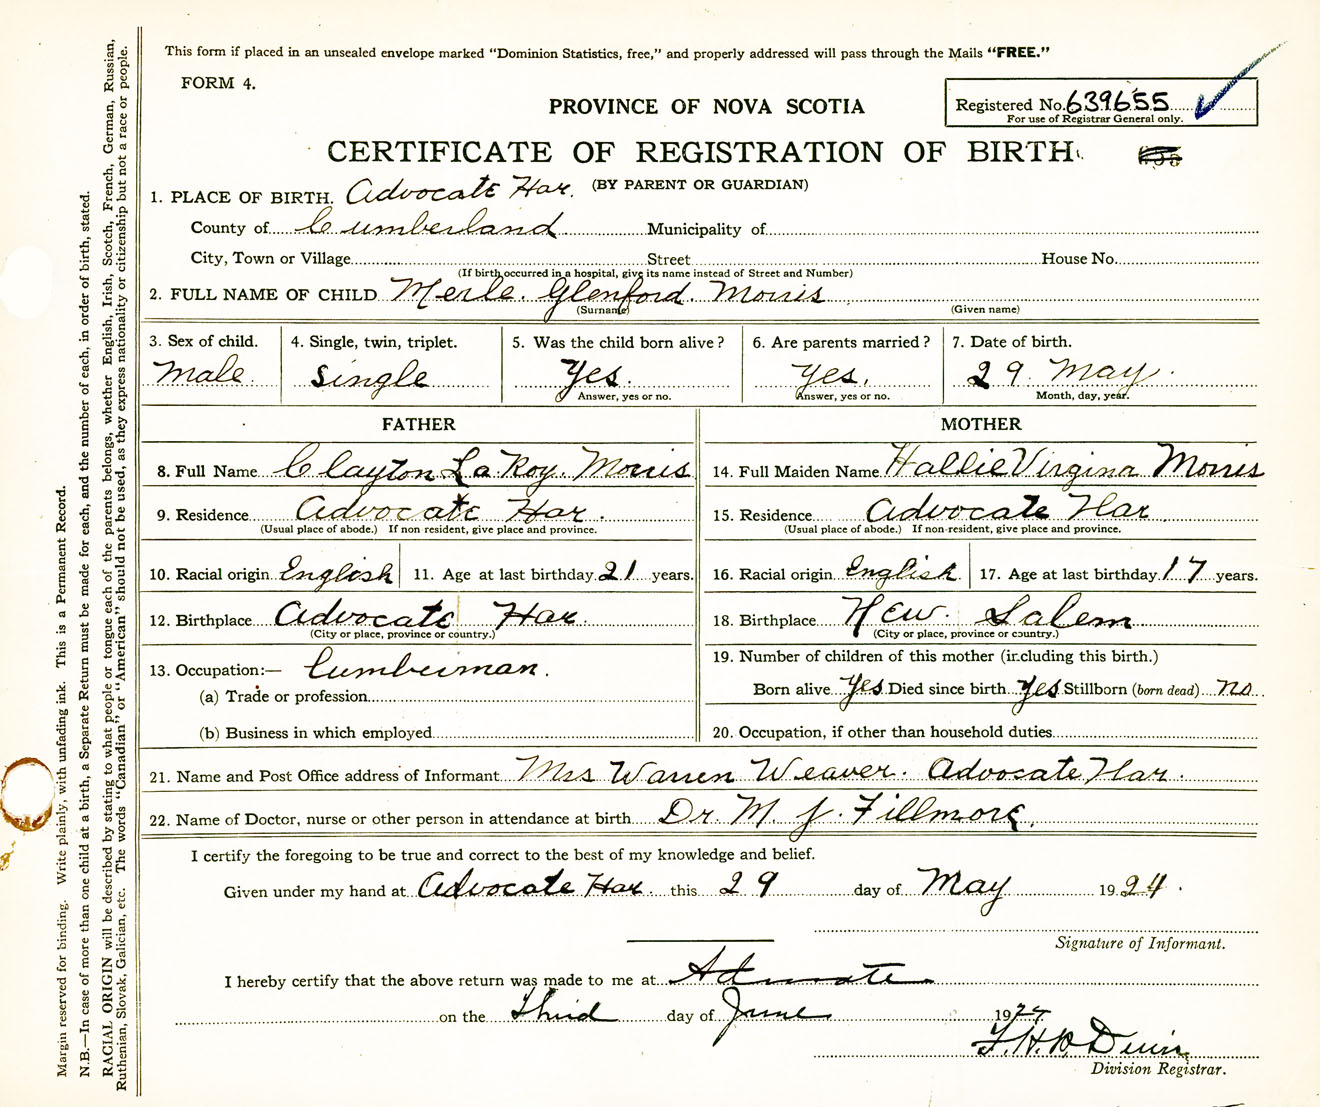 This form if placed in an unsealed envelope marked "Dominion Statistics, free," and properly addressed will pass through the Mails "FREE."
FORM 4.
PROVINCE OF NOVA SCOTIA
Registered No. 639655
For use of Registrar General only.
CERTIFICATE OF REGISTRATION OF BIRTH
(BY PARENT OR GUARDIAN)
1. PLACE OF BIRTH. Advocate Har.
County of Cumberland Municipality of
City, Town or Village Street House No.
(If birth occurred in a hospital, give its name instead of Street and Number)
2. FULL NAME OF CHILD Merle. Glenford. Morris
(Surname) (Given name)
3. Sex of child. 4. Single, twin, triplet. 5. Was the child born alive? 6. Are parents married? 7. Date of birth.
Male. Single Yes. Yes. 29. May.
Answer, yes or no. Answer, yes or no. Month, day, year.
FATHER MOTHER
8. Full Name Clayton LaRoy. Morris 14. Full Maiden Name Hallie Virgina Morris
9. Residence Advocate Har. 15. Residence Advocate Har
(Usual place of abode.) If non resident, give place and province. (Usual place of abode.) If non-resident, give place and province.
10. Racial origin English 11. Age at last birthday 21 years. 16. Racial origin English. 17. Age at last birthday 17 years.
12. Birthplace Advocate Har. 18. Birthplace New. Salem
(City or place, province or country.) (City or place, province or country.)
13. Occupation:— Lumberman. 19. Number of children of this mother (including this birth.)
(a) Trade or profession Born alive Yes Died since birth Yes Stillborn (born dead) no
(b) Business in which employed 20. Occupation, if other than household duties
21. Name and Post Office address of Informant Mrs Warren Weaver. Advocate Har.
22. Name of Doctor, nurse or other person in attendance at birth Dr. M. J. Fillmore.
I certify the foregoing to be true and correct to the best of my knowledge and belief.
Given under my hand at Advocate Har. this 29 day of May 1924.
Signature of Informant.
I hereby certify that the above return was made to me at Advocate
on the Third day of June 1924
F. H.
Division Registrar.
Margin reserved for binding. Write plainly, with unfading ink. This is a Permanent Record.
N.B.—In case of more than one child at a birth, a Separate Return must be made for each, and the number of each, in order of birth, stated.
RACIAL ORIGIN will be described by stating to what people or tongue each of the parents belongs, whether English, Irish, Scotch, French, German, Russian,
Ruthenian, Slovak, Galician, etc. The words "Canadian" or "American" should not be used, as they express nationality or citizenship but not a race or people.